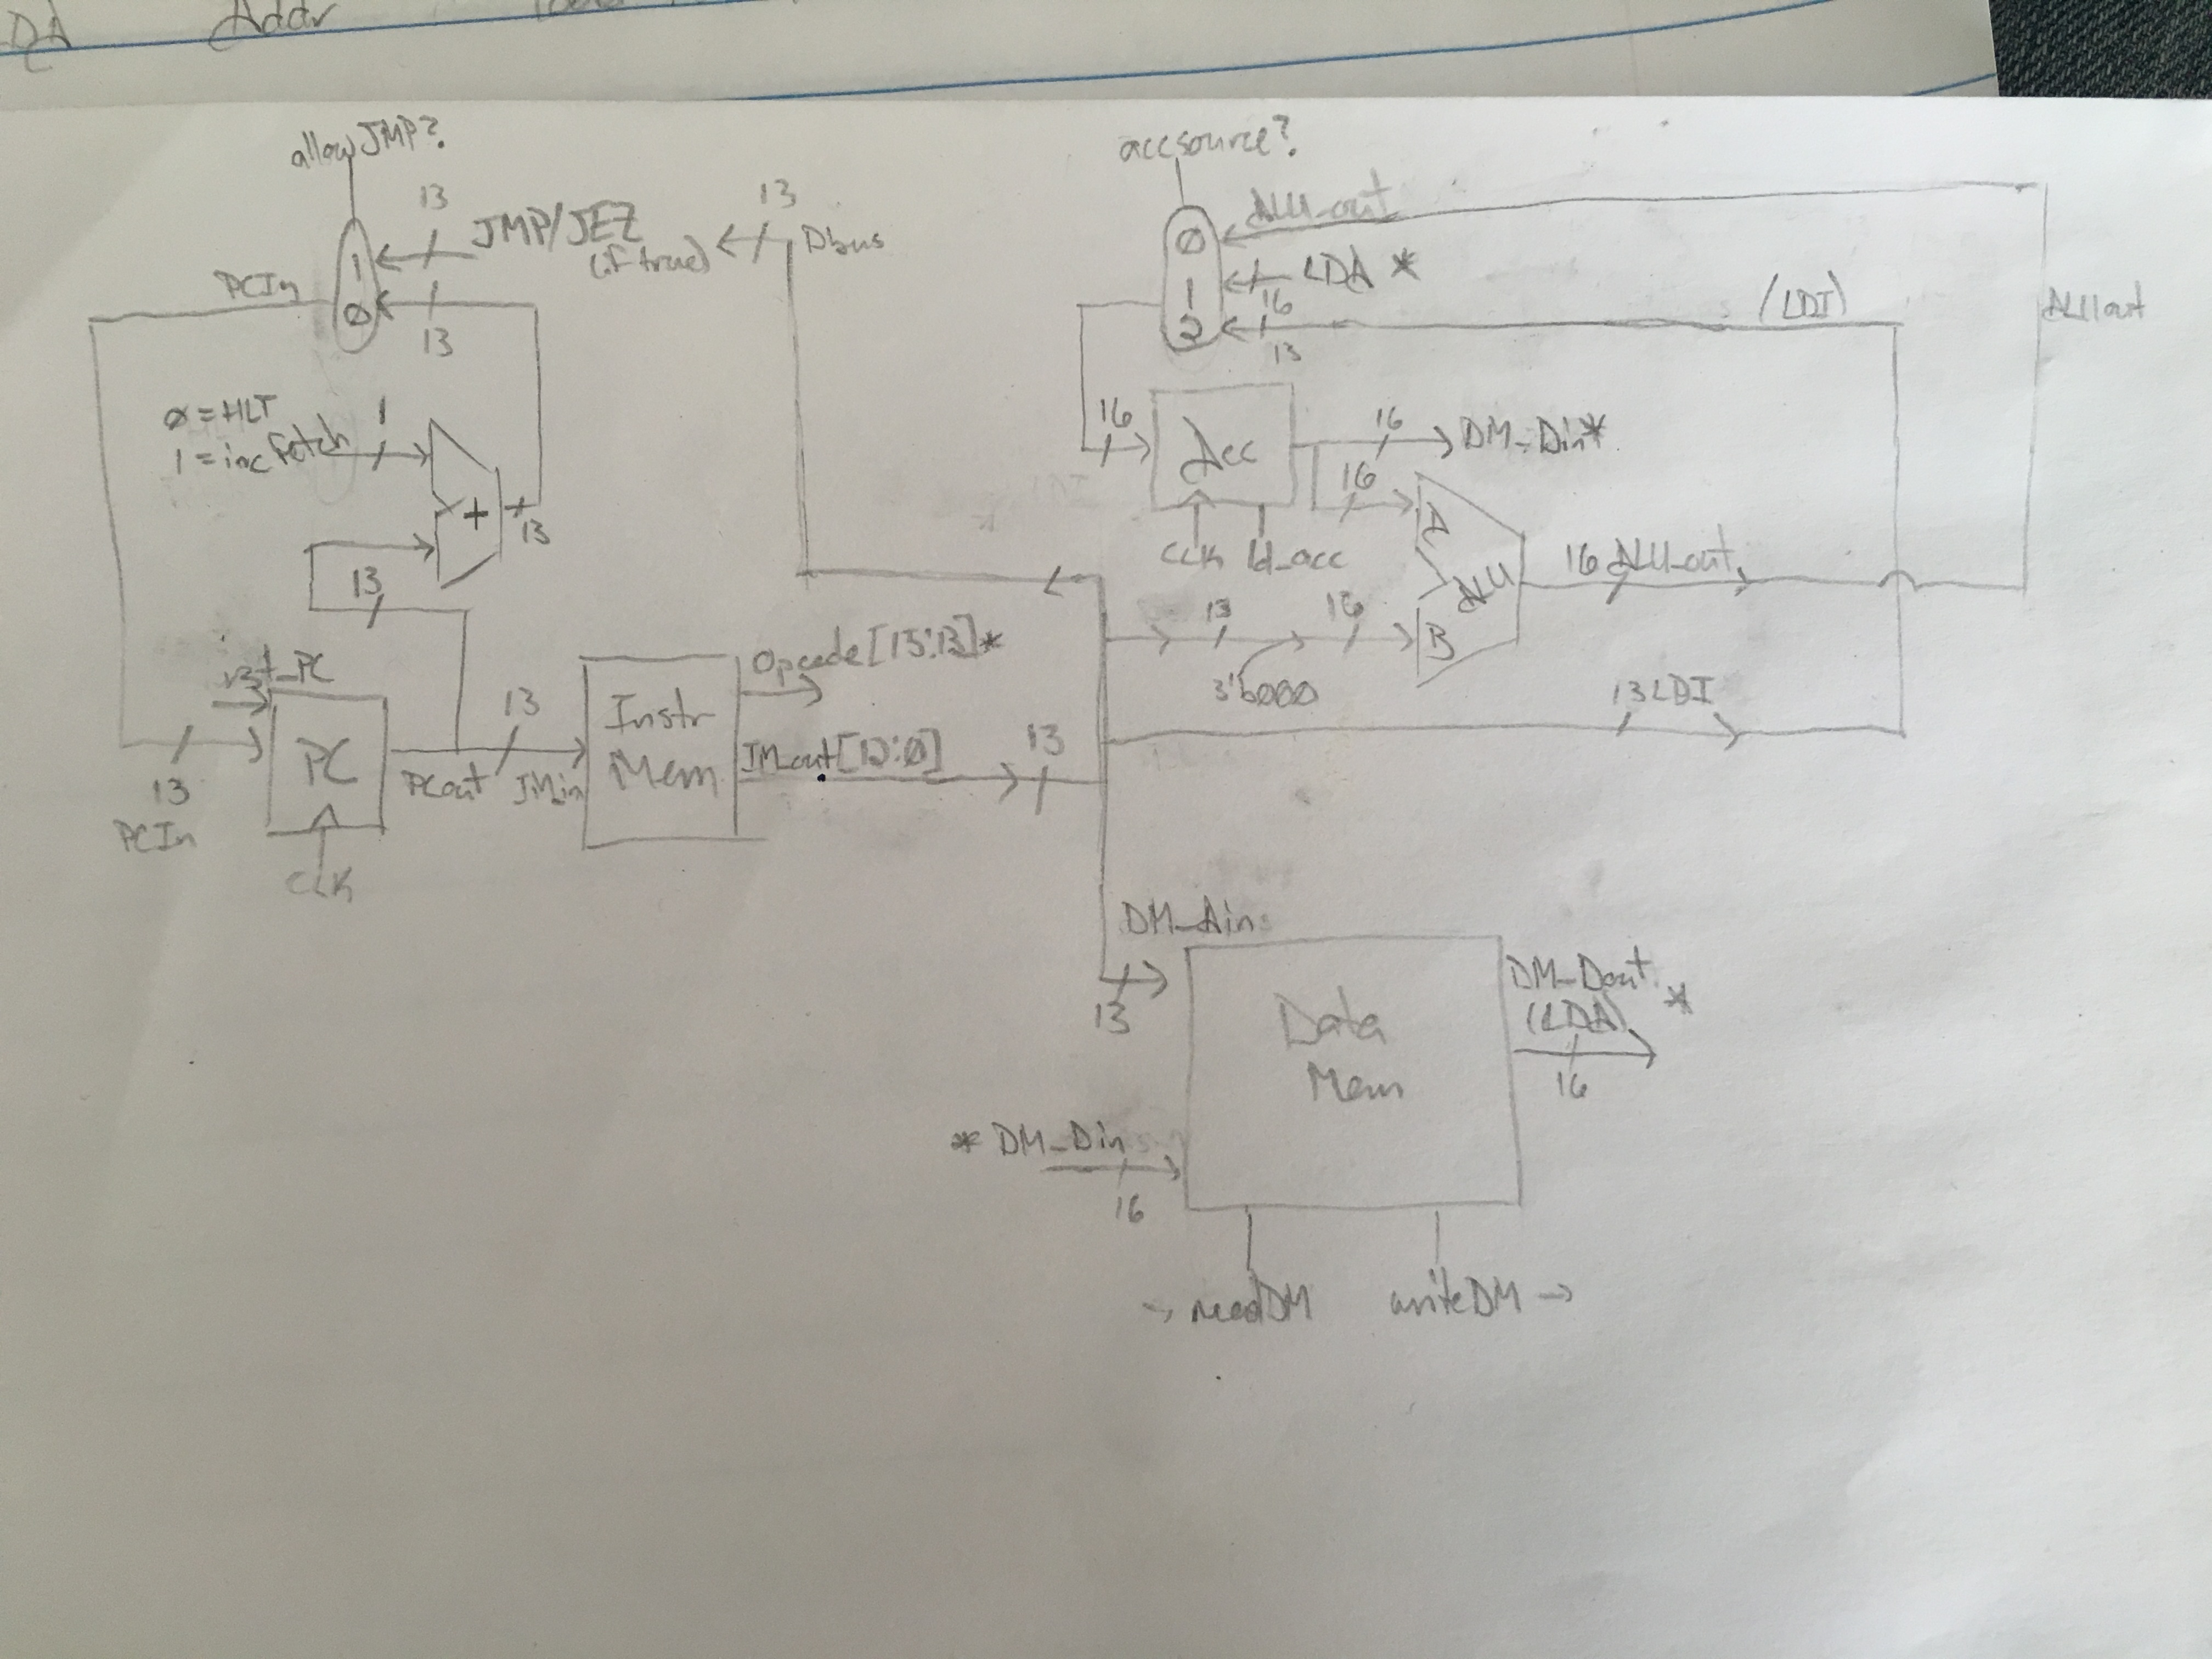 DA Addr
allowJMP?
13
JMP/JEZ
(if true)
13
Dbus
1
0
PCIn
13
0 = HLT
1 = inc
Fetch
1
+
13
13
rst_PC
PC
13
PCIn
CLK
PCout
13
IM_in
Instr
Mem
Opcode[15:13]*
IM_out[12:0]
13
accsource?
0
1
2
ALU_out
LDA *
16
13
(LDI)
ALUout
16
Acc
CLK
ld_acc
16
DM_Din*
16
A
ALU
B
16 ALU_out
13
16
3'b000
13 LDI
DM_Ain
13
Data
Mem
DM_Dout
(LDA) *
16
* DM_Din
16
→ readDM
writeDM →